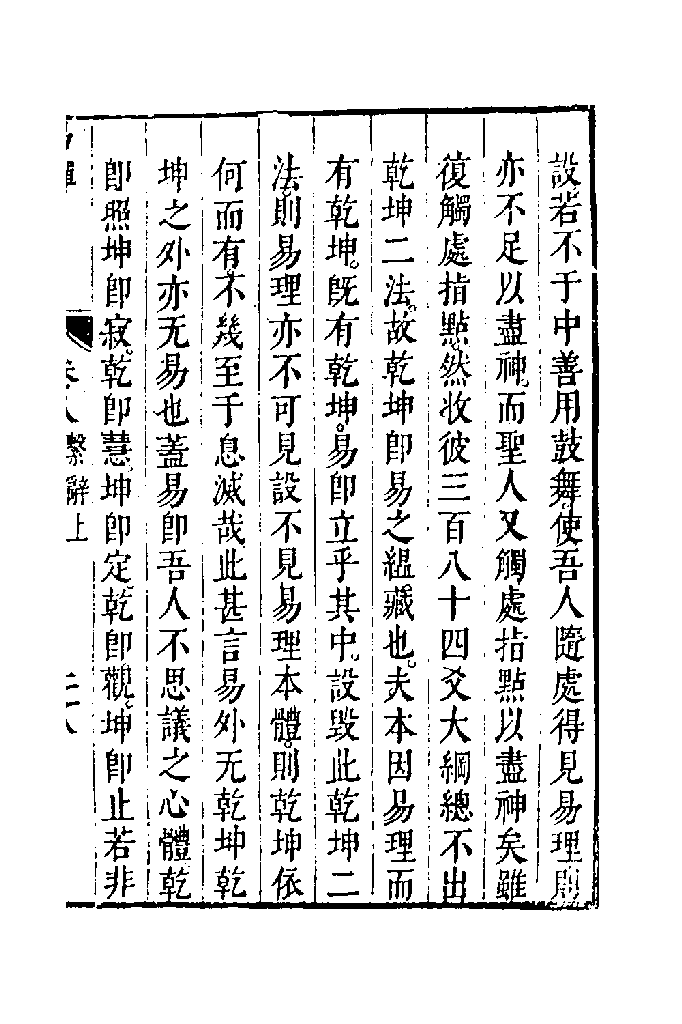 設若不于中善用鼓舞使吾人隨處得見易理則
亦不足以盡神而聖人又觸處指點以盡神矣雖
復觸處指點然收彼三百八十四爻大綱總不出
乾坤二法故乾坤卽易之縕藏也夫本因易理而
有乾坤旣有乾坤易卽立乎其中設毀此乾坤二
法則易理亦不可見設不見易理本體則乾坤依
何而有不幾至于息滅哉此甚言易外无乾坤乾
坤之外亦无易也蓋易卽吾人不思議之心體乾
卽照坤卽寂乾卽慧坤卽定乾卽觀坤卽止若非
卷八繫辭上